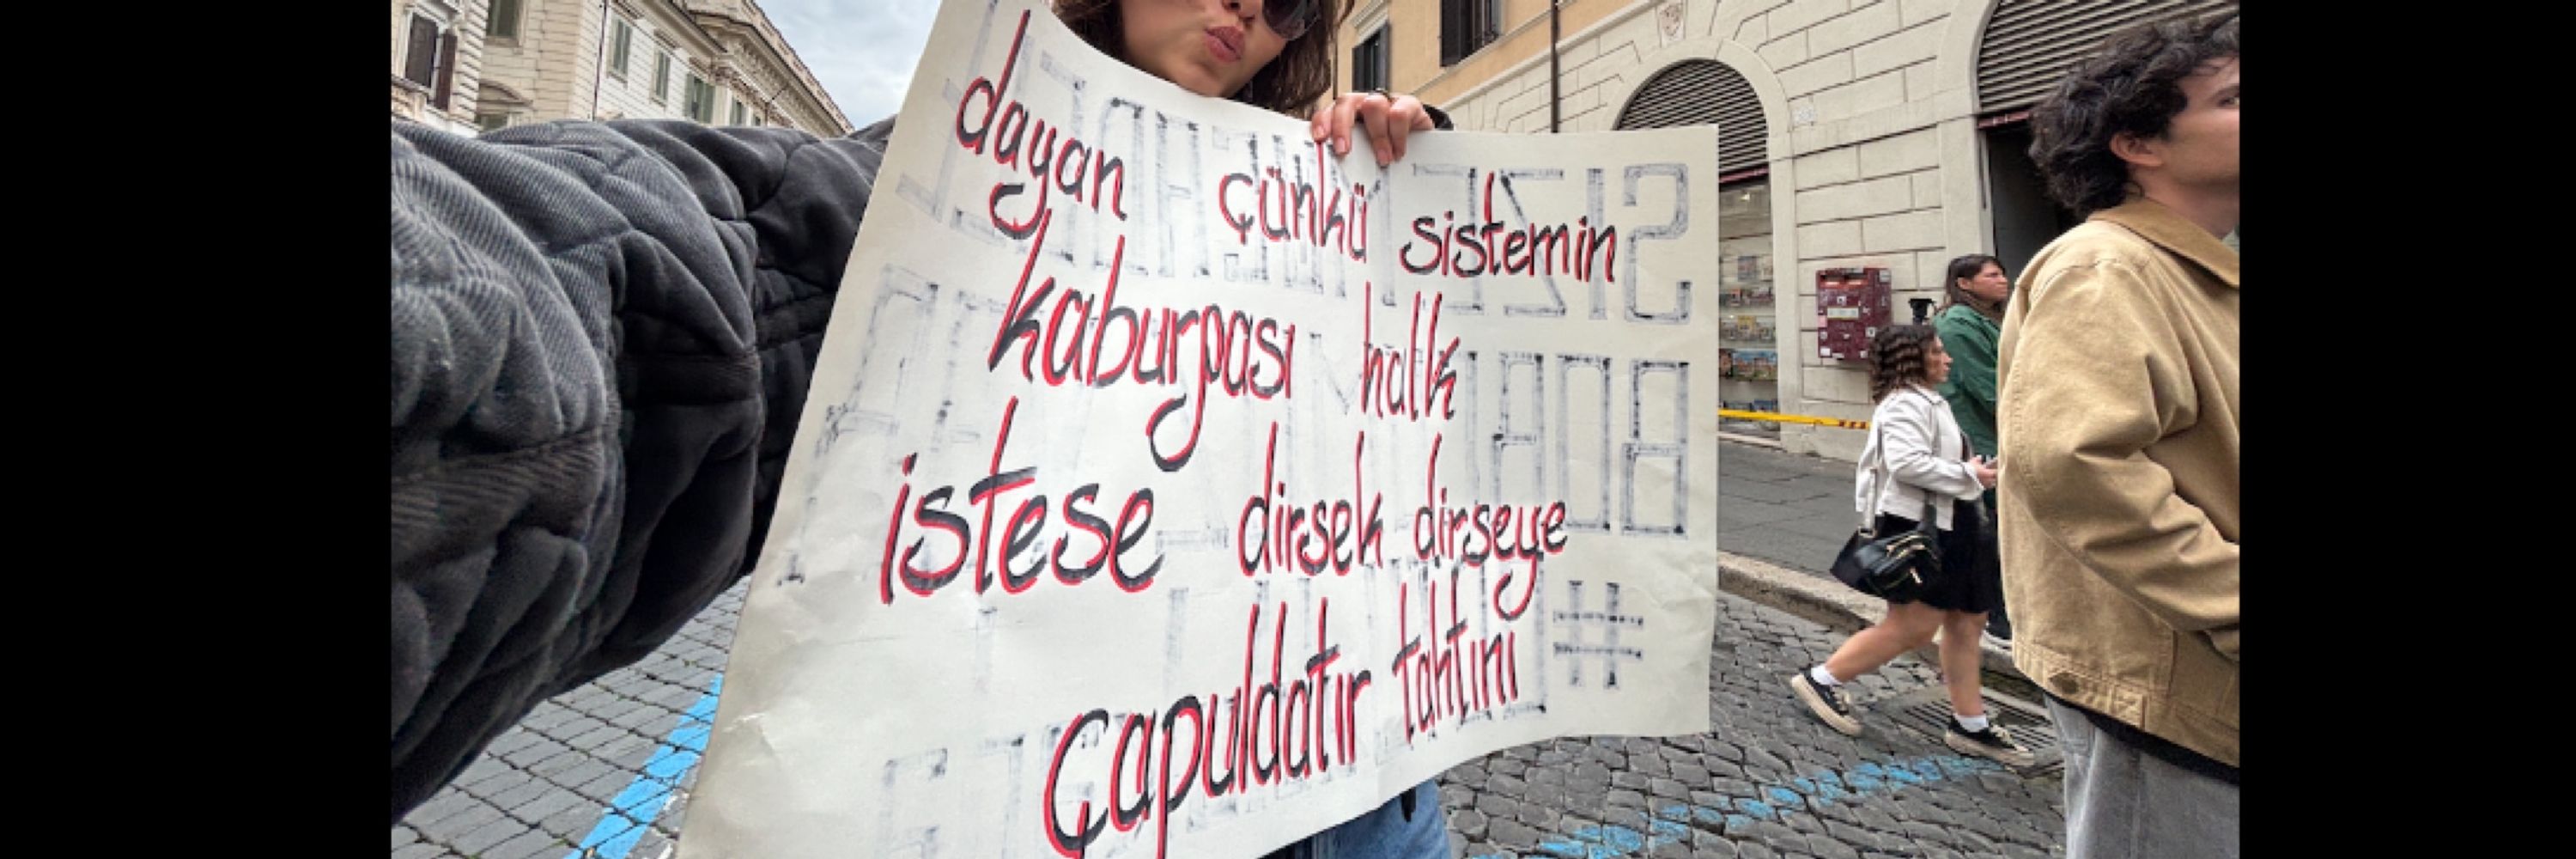 dayan çünkü sistemin
kaburgası halk
istese dirsek dirseğe
çapuldatır tahtını